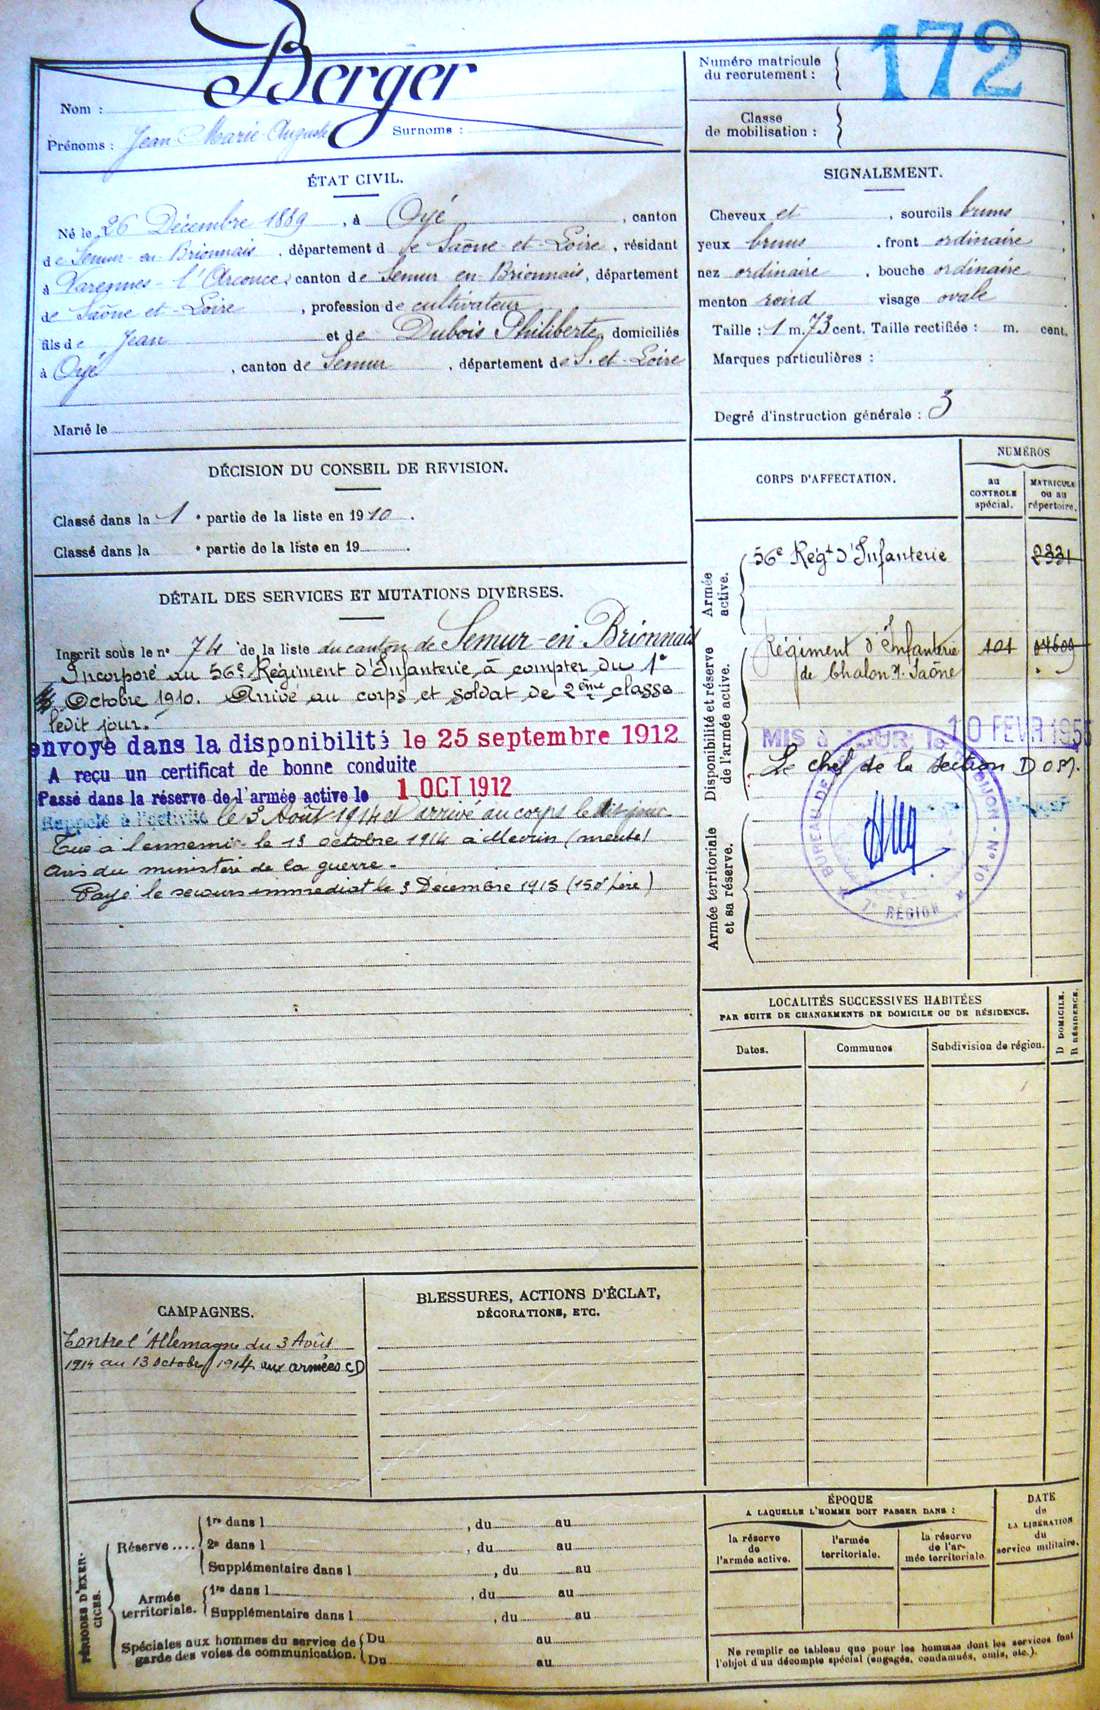 Berger
Nom :
Prénoms : Jean Marie Auguste Surnoms :
Numéro matricule
du recrutement :
172
Classe
de mobilisation :
ÉTAT CIVIL.
Né le 26 Décembre 1889, à Oyé, canton
de Semur-en-Brionnais, département de Saône-et-Loire, résidant
à Varennes-l'Arconce, canton de Semur en Brionnais, département
de Saône et-Loire, profession de cultivateur
fils de Jean et de Dubois Philiberte, domiciliés
à Oyé, canton de Semur, département de S.-et-Loire
Marié le
SIGNALEMENT.
Cheveux et, sourcils bruns,
yeux bruns, front ordinaire,
nez ordinaire, bouche ordinaire
menton rond visage ovale
Taille : 1 m. 73 cent. Taille rectifiée : m. cent.
Marques particulières :
Degré d'instruction générale : 3
DÉCISION DU CONSEIL DE REVISION.
Classé dans la 1 e partie de la liste en 1910.
Classé dans la e partie de la liste en 19
DÉTAIL DES SERVICES ET MUTATIONS DIVERSES.
Inscrit sous le n° 74 de la liste du canton de Semur-en-Brionnais
Incorporé au 56e Régiment d'Infanterie, à compter du 1er
Octobre 1910. Arrivé au corps et soldat de 2ème classe
ledit jour.
envoyé dans la disponibilité le 25 septembre 1912
A reçu un certificat de bonne conduite
Passé dans la réserve de l'armée active le 1 OCT 1912
Rappelé à l'activité le 3 Août 1914 et arrivé au corps le
Tué à l'ennemi le 13 octobre 1914 à
avis du ministère de la guerre.
Payé le secours immédiat le 3 Décembre 1915 (150f père)
CORPS D'AFFECTATION.
NUMÉROS
au
CONTROLE
spécial.
MATRICULE
ou au
répertoire.
Armée
active.
56e Regt d'Infanterie 2331
Disponibilité et réserve
de l'armée active.
Régiment d'Infanterie 101
de Chalon s. Saône
MIS à JOUR le 10 FEVR 195
Le chef de la section
BUREAU DE
N° 10
7e RÉGION
Armée territoriale
et sa réserve.
LOCALITÉS SUCCESSIVES HABITÉES
PAR SUITE DE CHANGEMENTS DE DOMICILE OU DE RÉSIDENCE.
Dates.
Communes
Subdivision de région.
D DOMICILE.
R RÉSIDENCE.
CAMPAGNES.
Contre l'Allemagne du 3 Août
1914 au 13 Octobre 1914 aux armées CD
BLESSURES, ACTIONS D'ÉCLAT,
DÉCORATIONS, ETC.
PÉRIODES D'EXER-
CICES.
Réserve
1re dans 1, du au
2e dans 1, du au
Supplémentaire dans 1, du au
Armée
territoriale.
1re dans 1, du au
Supplémentaire dans 1, du au
Spéciales aux hommes du service de
garde des voies de communication.
Du au
Du au
ÉPOQUE
A LAQUELLE L'HOMME DOIT PASSER DANS :
la réserve
de
l'armée active.
l'armée
territoriale.
la réserve
de l'ar-
mée territoriale
DATE
de
LA LIBÉRATION
du
service militaire.
Ne remplir ce tableau que pour les hommes dont les services font
l'objet d'un décompte spécial (engagés, condamnés, omis, etc.).